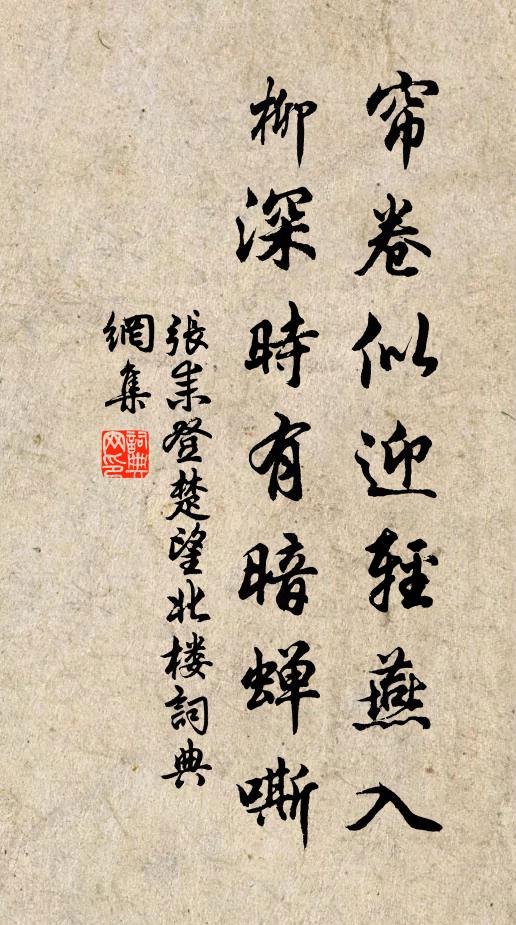 帘卷似迎輕燕入
柳深時有暗蝉嘶
張耒登楚望北楼詞典
網集
詞典
网印